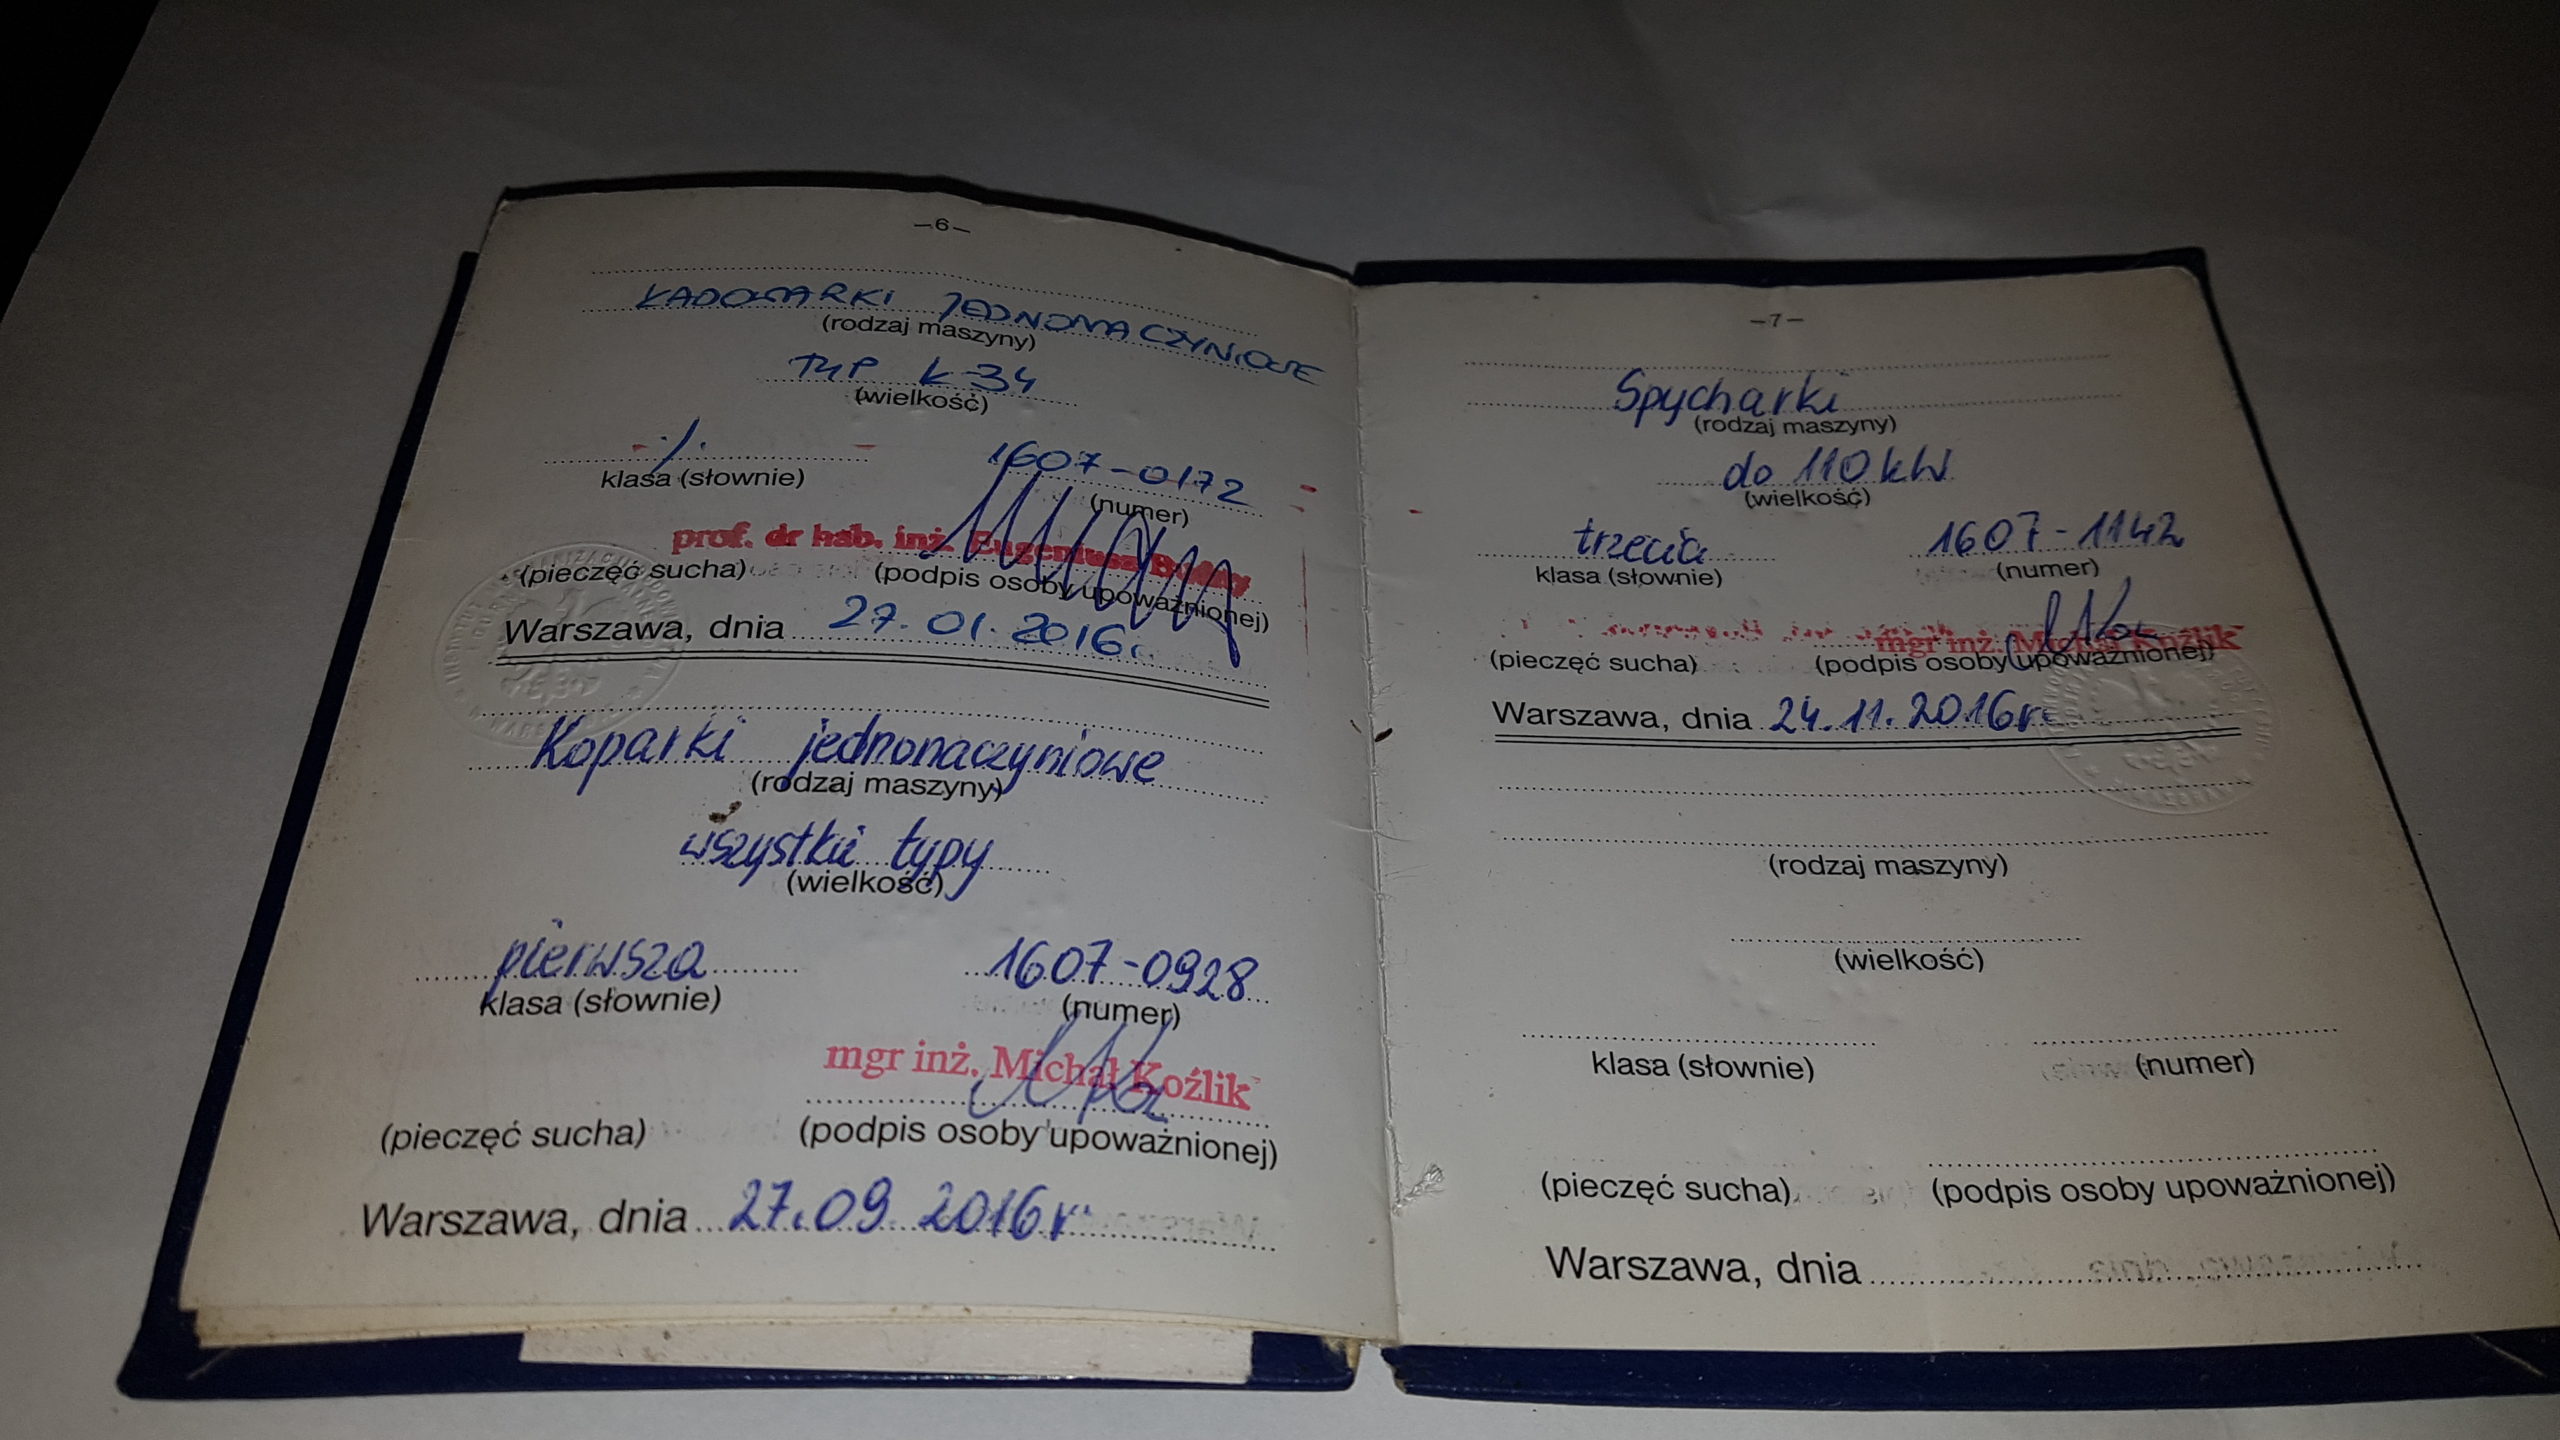 –6–
ŁADOWARKI JEDNONACZYNIOWE
(rodzaj maszyny)
TYP K-34
(wielkość)
-/. 1607-0172
klasa (słownie) (numer)
prof. dr hab. inż. Eugeniusz
(pieczęć sucha) (podpis osoby upoważnionej)
Warszawa, dnia 27.01.2016r.
Koparki jednonaczyniowe
(rodzaj maszyny)
wszystkie typy
(wielkość)
pierwsza 1607-0928
klasa (słownie) (numer)
mgr inż. Michał Koźlik
(pieczęć sucha) (podpis osoby upoważnionej)
Warszawa, dnia 27.09.2016r.
–7–
Spycharki
(rodzaj maszyny)
do 110 kW
(wielkość)
trzecia 1607-1142
klasa (słownie) (numer)
mgr inż. Michał Koźlik
(pieczęć sucha) (podpis osoby upoważnionej)
Warszawa, dnia 24.11.2016r.
(rodzaj maszyny)
(wielkość)
klasa (słownie) (numer)
(pieczęć sucha) (podpis osoby upoważnionej)
Warszawa, dnia